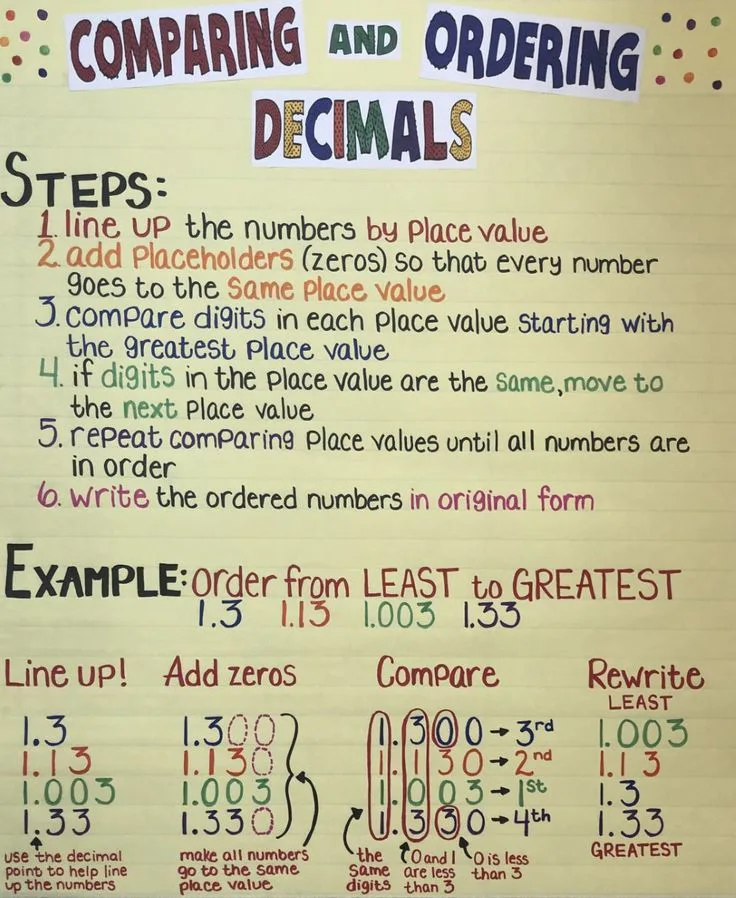 COMPARING AND ORDERING
DECIMALS
STEPS:
1. line up the numbers by place value
2. add placeholders (zeros) so that every number
goes to the same place value
3. compare digits in each place value starting with
the greatest place value
4. if digits in the place value are the same, move to
the next place value
5. repeat comparing place values until all numbers are
in order
6. write the ordered numbers in original form
EXAMPLE: Order from LEAST to GREATEST
1.3 1.13 1.003 1.33
Line up!
1.3
1.13
1.003
1.33
use the decimal
point to help line
up the numbers
Add zeros
1.300
1.130
1.003
1.330
make all numbers
go to the same
place value
Compare
1.300 → 3rd
1.130 → 2nd
1.003 → 1st
1.330 → 4th
the
same
digits
0 and 1
are less
than 3
0 is less
than 3
Rewrite
LEAST
1.003
1.13
1.3
1.33
GREATEST